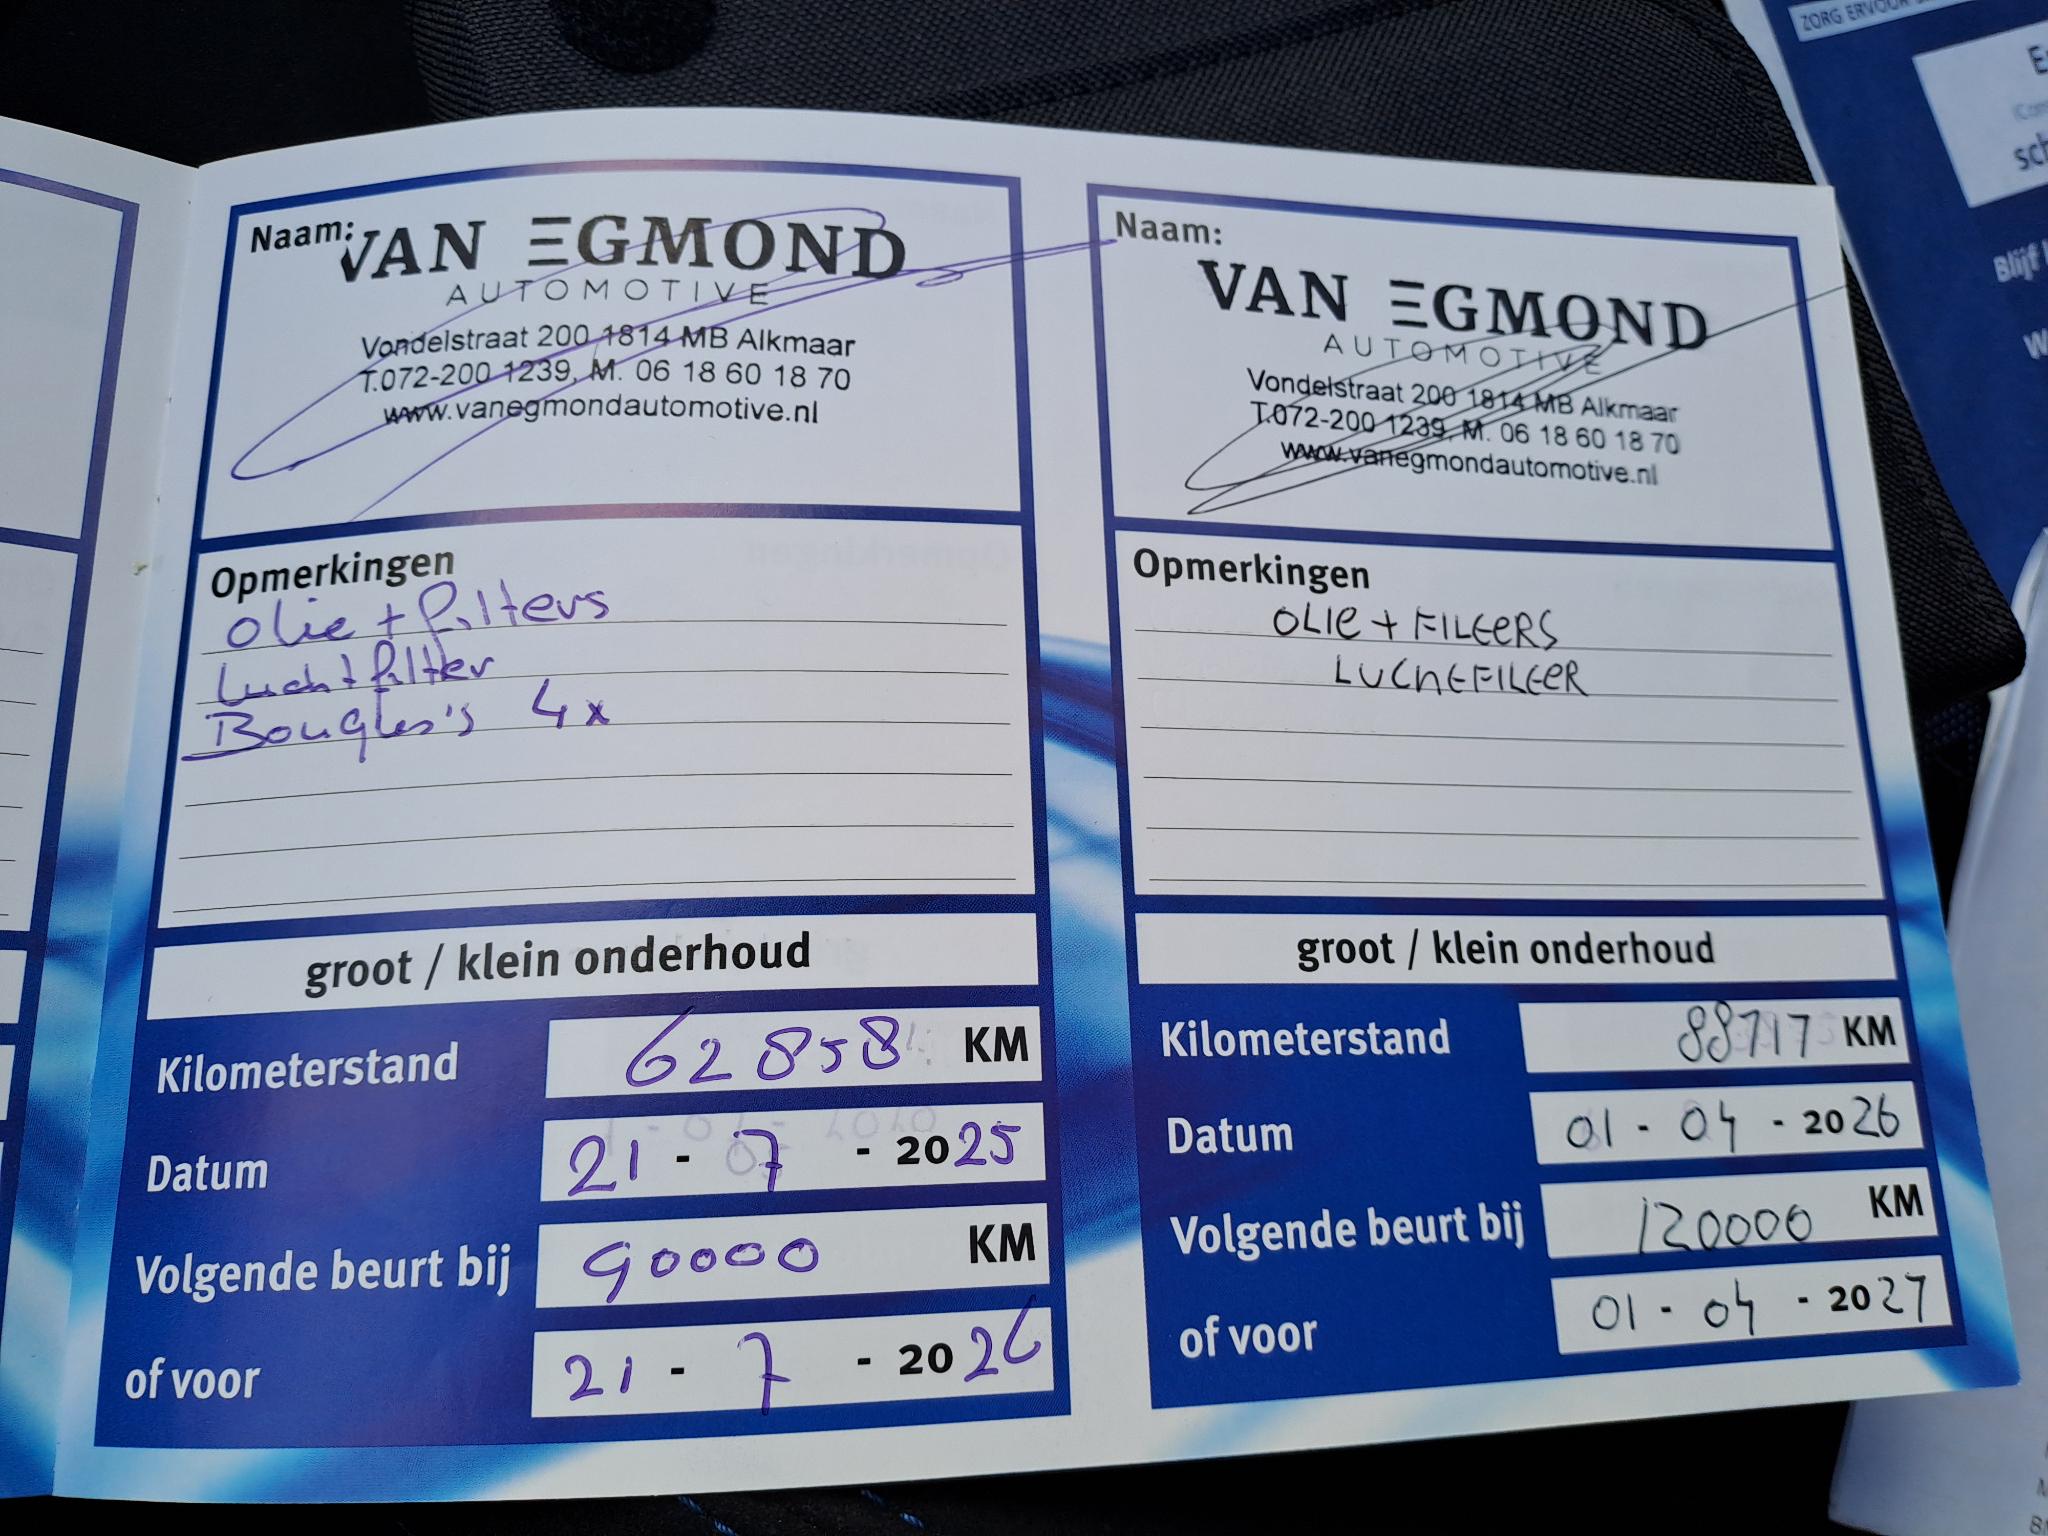 Naam:
VAN EGMOND
AUTOMOTIVE
Vondelstraat 200 1814 MB Alkmaar
T.072-200 1239, M. 06 18 60 18 70
www.vanegmondautomotive.nl
Opmerkingen
Olie + filters
Luchtfilter
Bougies's 4x
groot / klein onderhoud
Kilometerstand 62858 KM
Datum 21 - 7 - 2025
Volgende beurt bij 90000 KM
of voor 21 - 7 - 2026
Naam:
VAN EGMOND
AUTOMOTIVE
Vondelstraat 200 1814 MB Alkmaar
T.072-200 1239, M. 06 18 60 18 70
www.vanegmondautomotive.nl
Opmerkingen
OLIE + FILTERS
LUCHTFILTER
groot / klein onderhoud
Kilometerstand 88717 KM
Datum 01 - 04 - 2026
Volgende beurt bij 120000 KM
of voor 01 - 04 - 2027
ZORG ERVOOR
Blijf